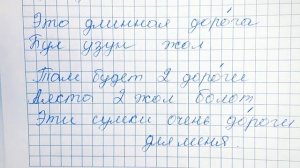 Это длинная доро́га
Бул узун жол
Там будет 2 доро́ги
Аякта 2 жол болот
Эти сумки очень до́роги
для меня.